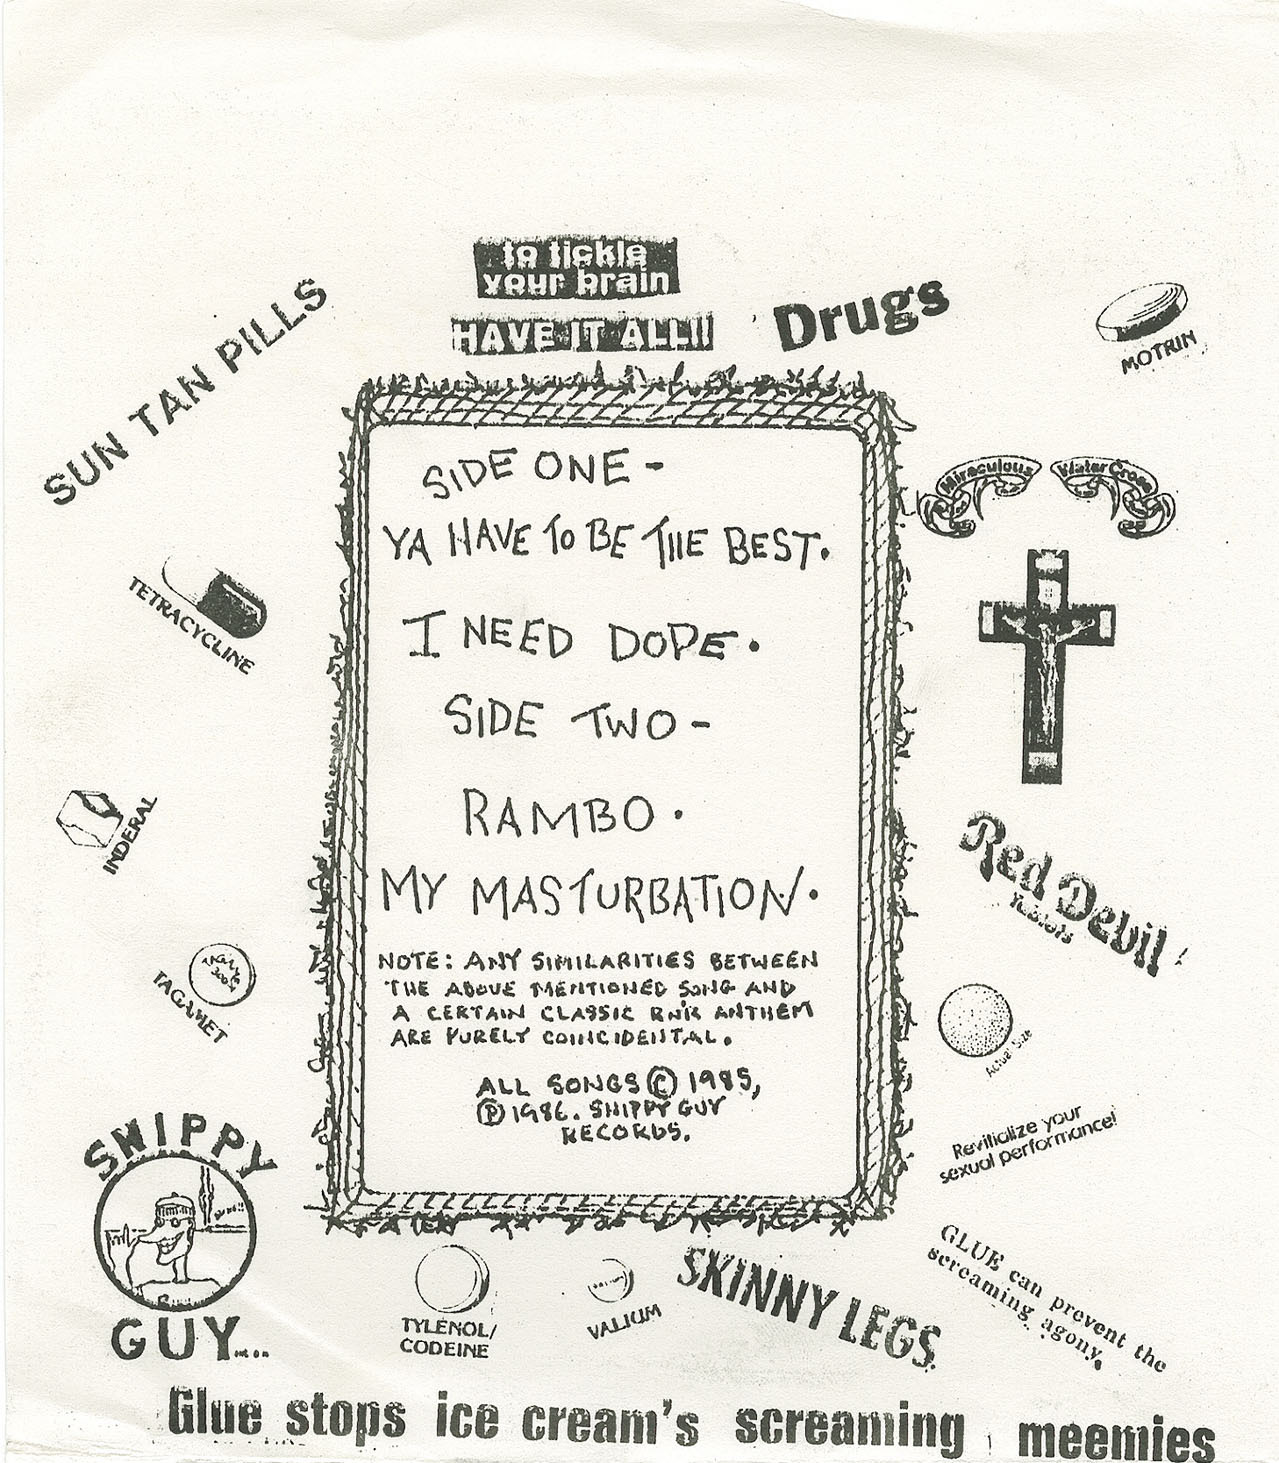 to tickle
your brain
HAVE IT ALL!!
Drugs
MOTRIN
SUN TAN PILLS
SIDE ONE -
YA HAVE TO BE THE BEST.
I NEED DOPE.
SIDE TWO -
RAMBO.
MY MASTURBATION.
NOTE: ANY SIMILARITIES BETWEEN
THE ABOVE MENTIONED SONG AND
A CERTAIN CLASSIC RN'R ANTHEM
ARE PURELY COINCIDENTAL.
ALL SONGS © 1985,
℗ 1986. SHIPPY GUY
RECORDS.
Miraculous Water Cross
TETRACYCLINE
INDERAL
Red Devil
Tablets
TAGAMET
300
TAGAMET
Actual Size
Revitialize your
sexual performance!
SHIPPY
GUY...
TYLENOL/
CODEINE
VALIUM
SKINNY LEGS
GLUE can prevent the
screaming agony.
Glue stops ice cream's screaming meemies